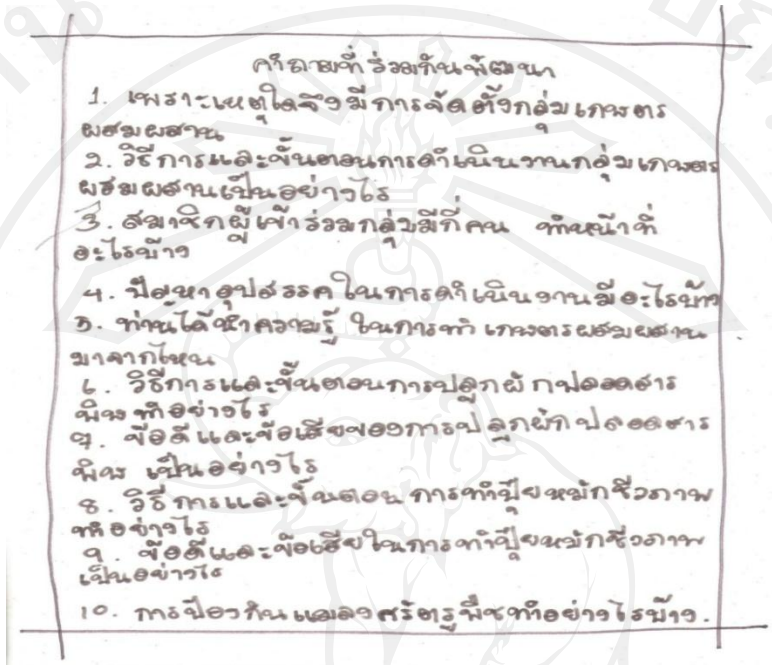 คำถามที่ร่วมกันพัฒนา
1. เพราะเหตุใดจึงมีการจัดตั้งกลุ่มเกษตร
ผสมผสาน
2. วิธีการและขั้นตอนการดำเนินงานกลุ่มเกษตร
ผสมผสานเป็นอย่างไร
3. สมาชิกผู้เข้าร่วมกลุ่มมีกี่คน ทำหน้าที่
อะไรบ้าง
4. ปัญหาอุปสรรคในการดำเนินงานมีอะไรบ้าง
5. ท่านได้นำความรู้ ในการทำ เกษตรผสมผสาน
มาจากไหน
6. วิธีการและขั้นตอนการปลูกผักปลอดสาร
พิษ ทำอย่างไร
7. ข้อดีและข้อเสียของการปลูกผักปลอดสาร
พิษ เป็นอย่างไร
8. วิธีการและขั้นตอน การทำปุ๋ยหมักชีวภาพ
ทำอย่างไร
9. ข้อดีและข้อเสียในการทำปุ๋ยหมักชีวภาพ
เป็นอย่างไร
10. การป้องกันแมลงศรัตรูพืชทำอย่างไรบ้าง.